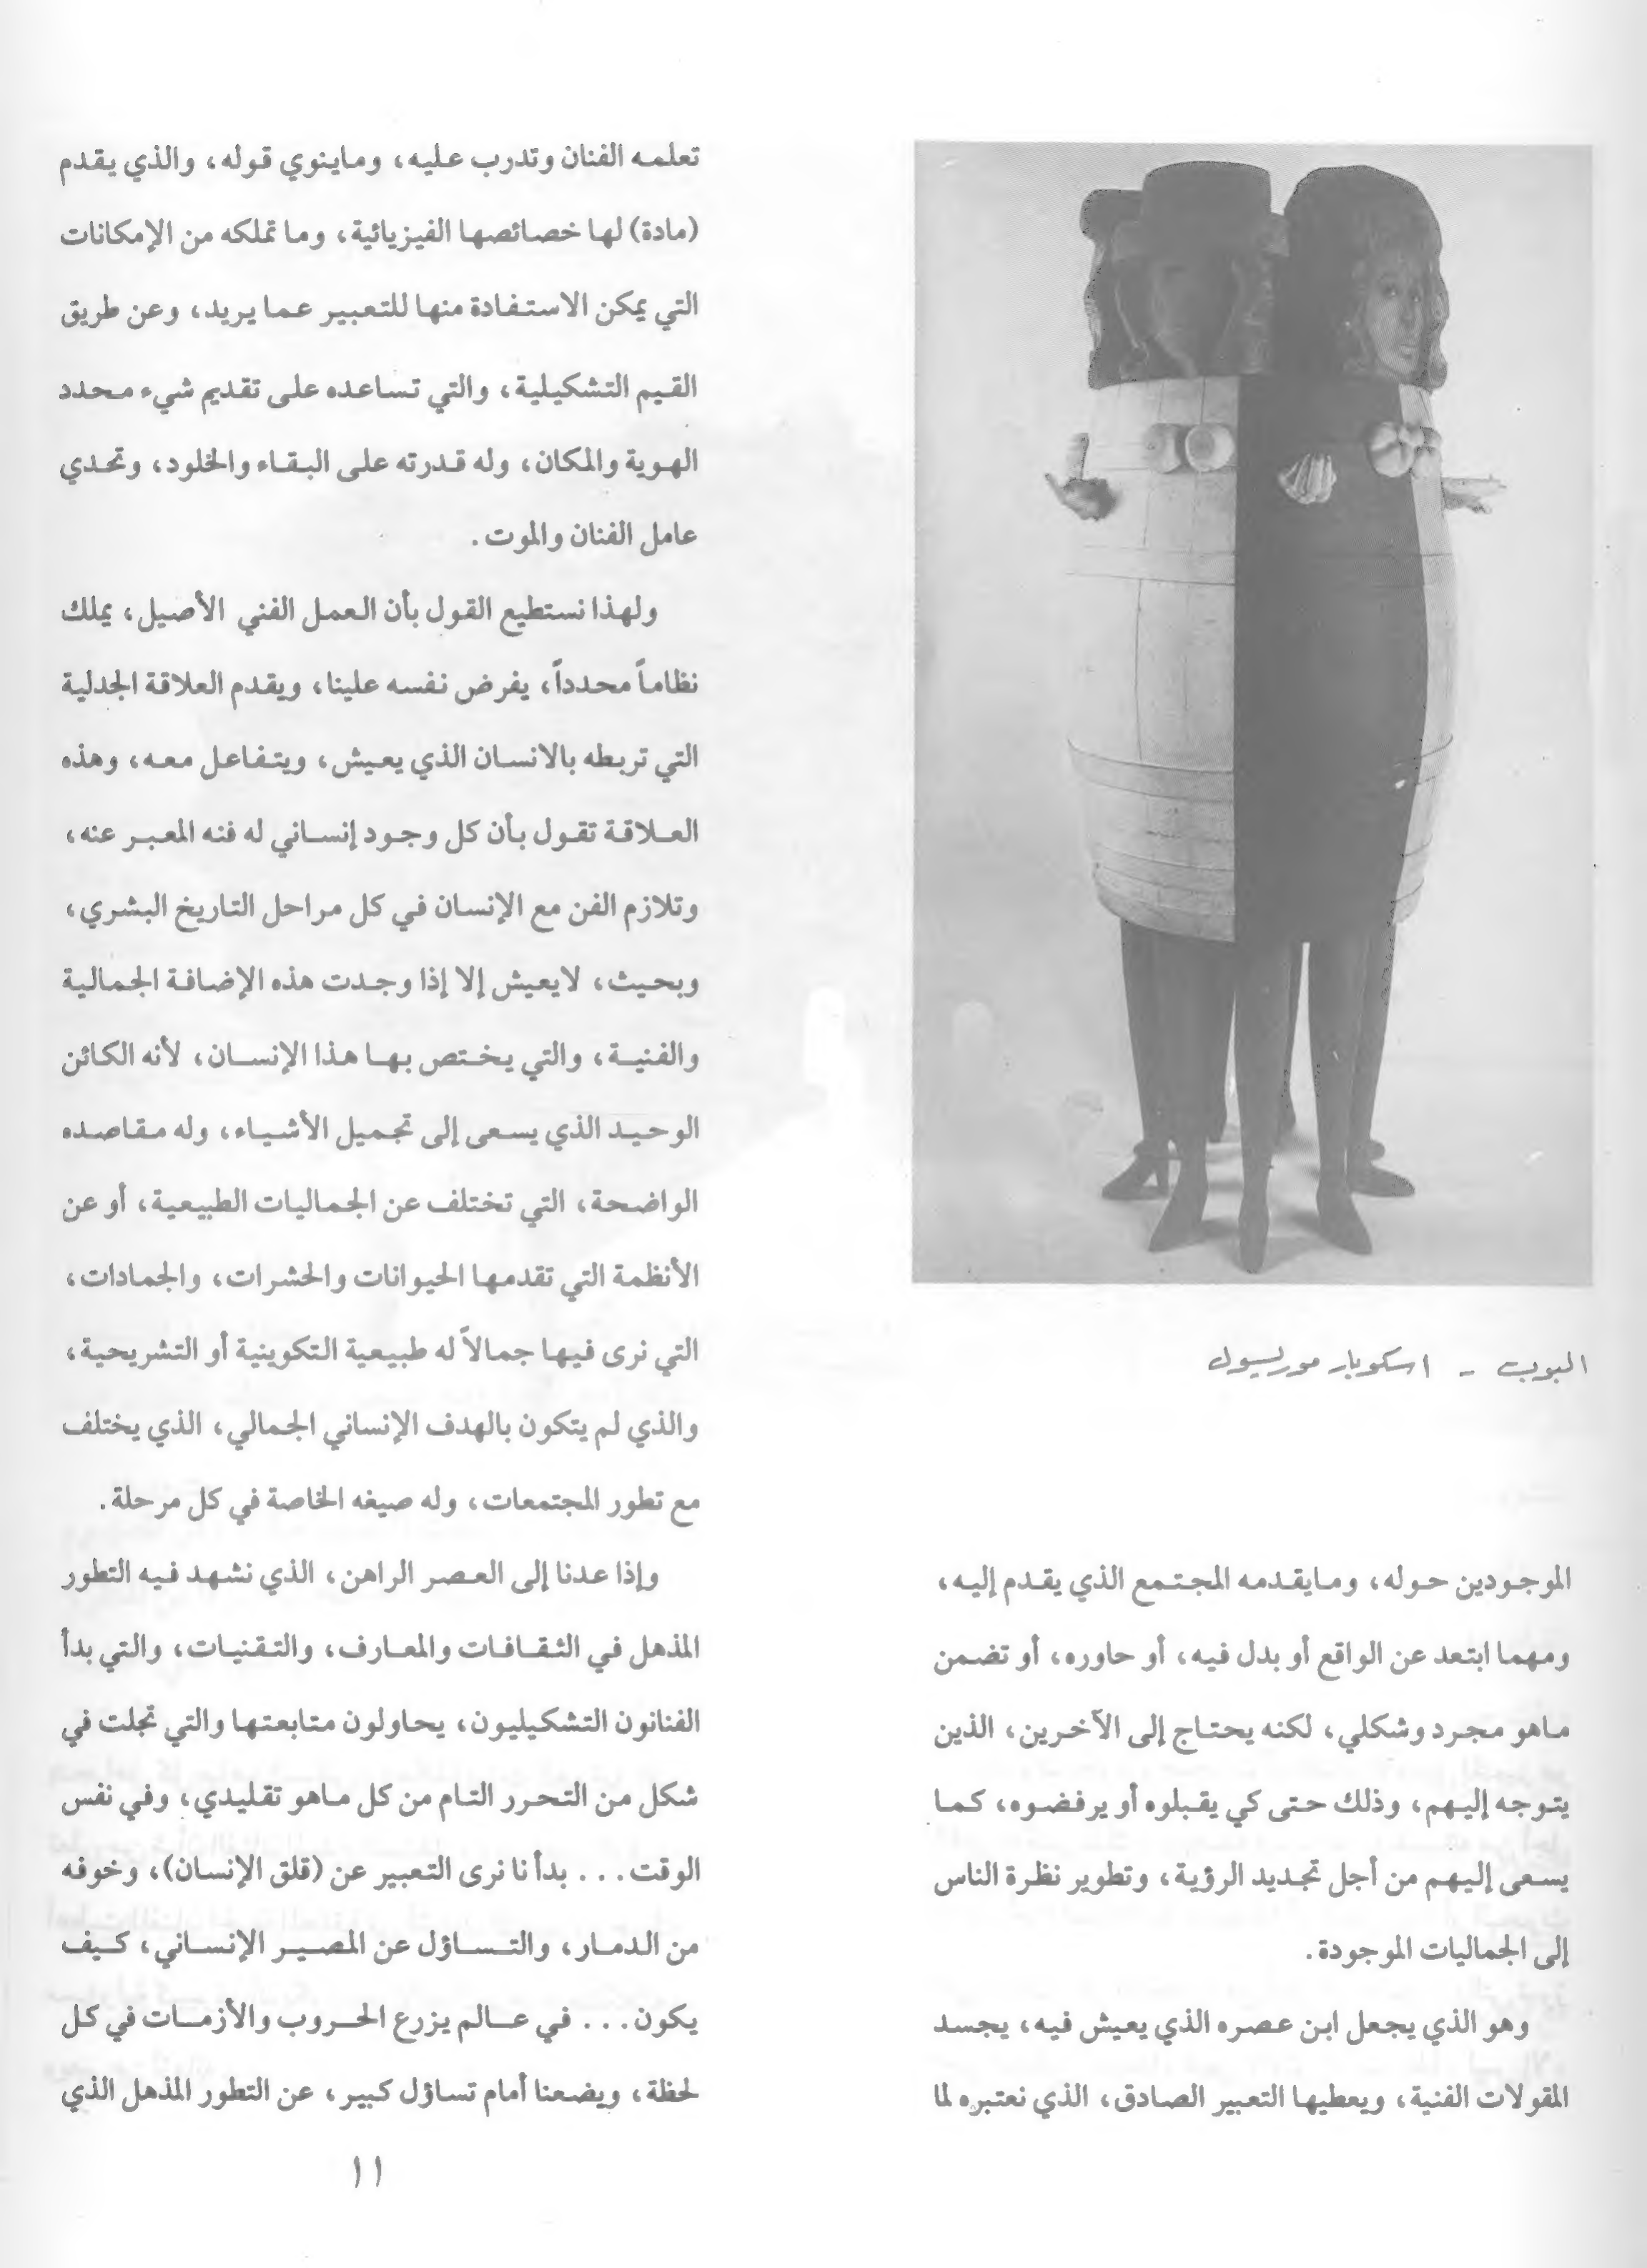 البوب - اسكوبار موريسول
الموجودين حوله، ومايقدمه المجتمع الذي يقدم إليه،
ومهما ابتعد عن الواقع أو بدل فيه، أو حاوره، أو تضمن
ماهو مجرد وشكلي، لكنه يحتاج إلى الآخرين، الذين
يتوجه إليهم، وذلك حتى كي يقبلوه أو يرفضوه، كما
يسعى إليهم من أجل تجديد الرؤية، وتطوير نظرة الناس
إلى الجماليات الموجودة.
وهو الذي يجعل ابن عصره الذي يعيش فيه، يجسد
المقولات الفنية، ويعطيها التعبير الصادق، الذي نعتبره لما
تعلمه الفنان وتدرب عليه، وماينوي قوله، والذي يقدم
(مادة) لها خصائصها الفيزيائية، وما تملكه من الإمكانات
التي يمكن الاستفادة منها للتعبير عما يريد، وعن طريق
القيم التشكيلية، والتي تساعده على تقديم شيء محدد
الهوية والمكان، وله قدرته على البقاء والخلود، وتحدي
عامل الفنان والموت.
ولهذا نستطيع القول بأن العمل الفني الأصيل، يملك
نظاماً محدداً، يفرض نفسه علينا، ويقدم العلاقة الجدلية
التي تربطه بالانسان الذي يعيش، ويتفاعل معه، وهذه
العلاقة تقول بأن كل وجود إنساني له فنه المعبر عنه،
وتلازم الفن مع الإنسان في كل مراحل التاريخ البشري،
وبحيث، لايعيش إلا إذا وجدت هذه الإضافة الجمالية
والفنية، والتي يختص بها هذا الإنسان، لأنه الكائن
الوحيد الذي يسعى إلى تجميل الأشياء، وله مقاصده
الواضحة، التي تختلف عن الجماليات الطبيعية، أو عن
الأنظمة التي تقدمها الحيوانات والحشرات، والجمادات،
التي نرى فيها جمالاً له طبيعية التكوينية أو التشريحية،
والذي لم يتكون بالهدف الإنساني الجمالي، الذي يختلف
مع تطور المجتمعات، وله صيغه الخاصة في كل مرحلة.
وإذا عدنا إلى العصر الراهن، الذي نشهد فيه التطور
المذهل في الثقافات والمعارف، والتقنيات، والتي بدأ
الفنانون التشكيليون، يحاولون متابعتها والتي تجلت في
شكل من التحرر التام من كل ماهو تقليدي، وفي نفس
الوقت... بدأنا نرى التعبير عن (قلق الإنسان)، وخوفه
من الدمار، والتساؤل عن المصير الإنساني، كيف
يكون... في عالم يزرع الحروب والأزمات في كل
لحظة، ويضعنا أمام تساؤل كبير، عن التطور المذهل الذي
١١